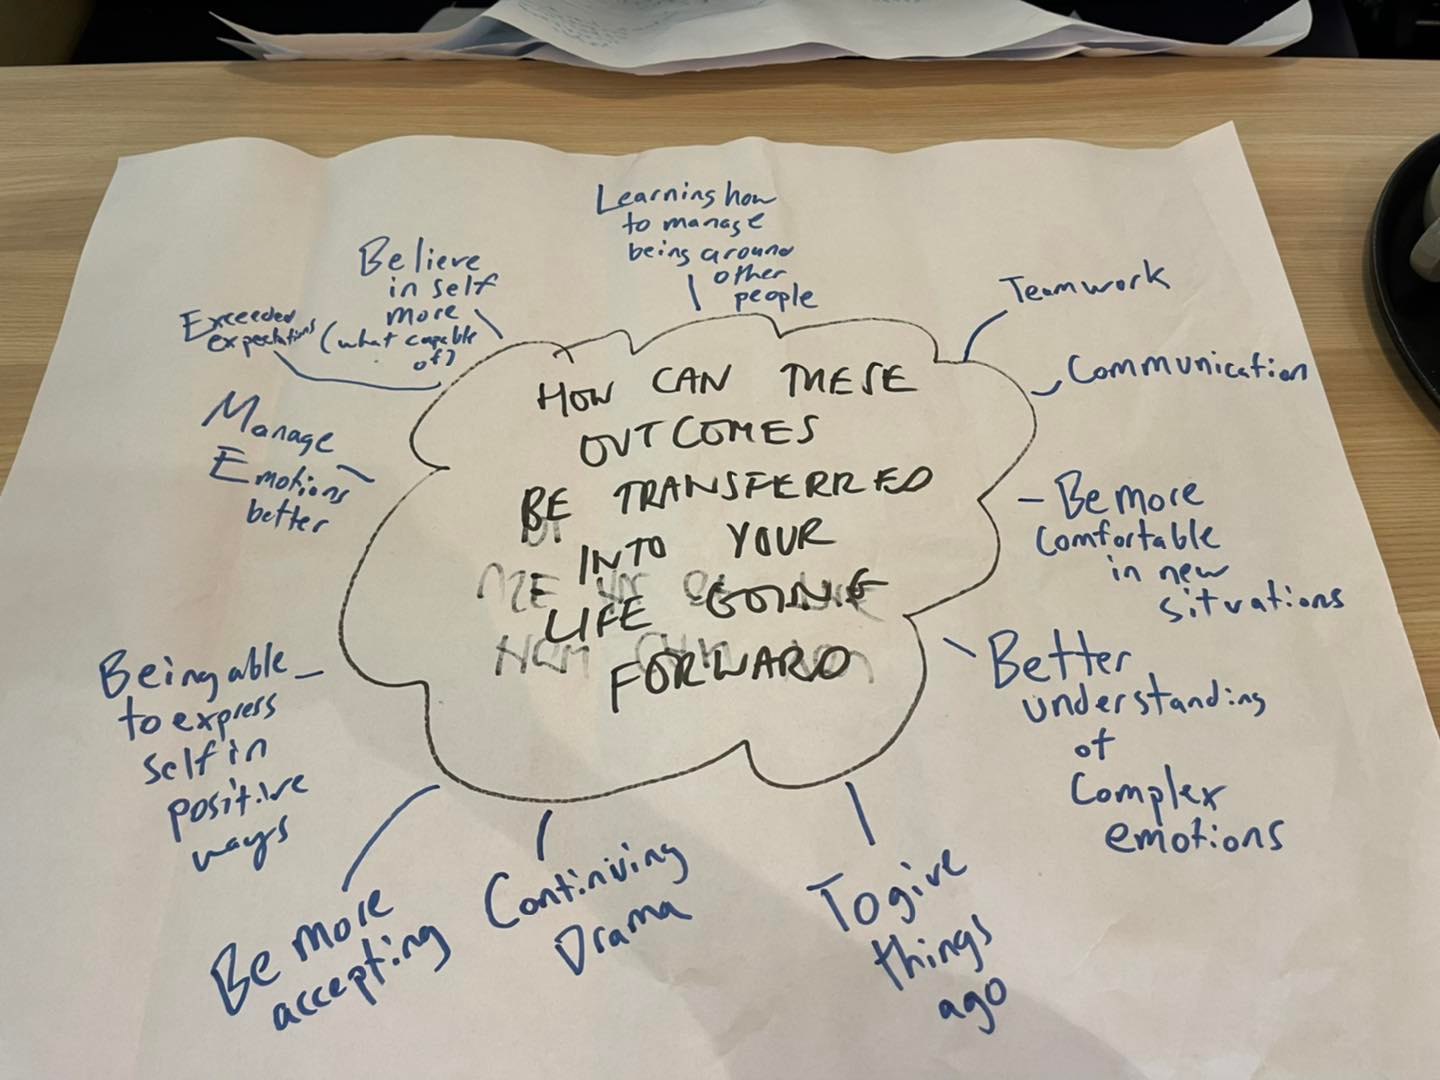 Learning how
to manage
being around
other
people
Believe
in self
more
(what capable
of)
Exceeded
expectations
Teamwork
Communication
Manage
Emotions
better
HOW CAN THESE
OUTCOMES
BE TRANSFERRED
INTO YOUR
LIFE GOING
FORWARD
- Be more
comfortable
in new
situations
Better
understanding
of
complex
emotions
Being able
to express
self in
positive
ways
Be more
accepting
Continuing
Drama
To give
things
ago